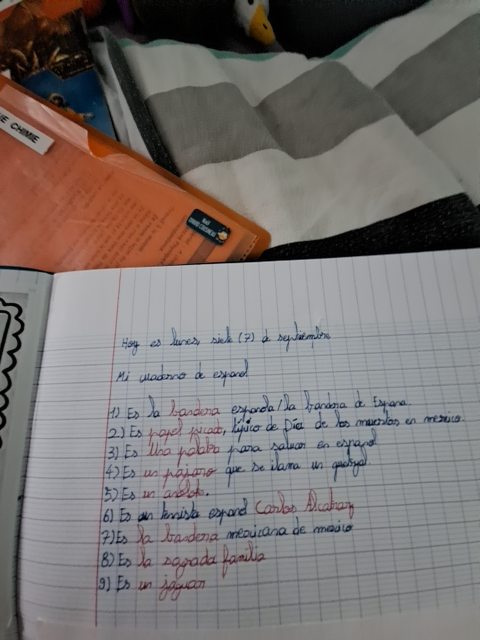 IE CHIMIE
Hoy es lunes, siete (7) de septiembre
Mi cuaderno de español
1) Es la bandera española/la bandera de España.
2) Es papel picado, típico de Día de los muertos en mexico.
3) Es Una palabra para saluar en español
4) Es un pájaro que se llama un quetzal
5) Es un
6) Es un tennista español Carlos Alcaraz
7) Es la bandera mexicana de mexico
8) Es la sagrada familia
9) Es un jaguar